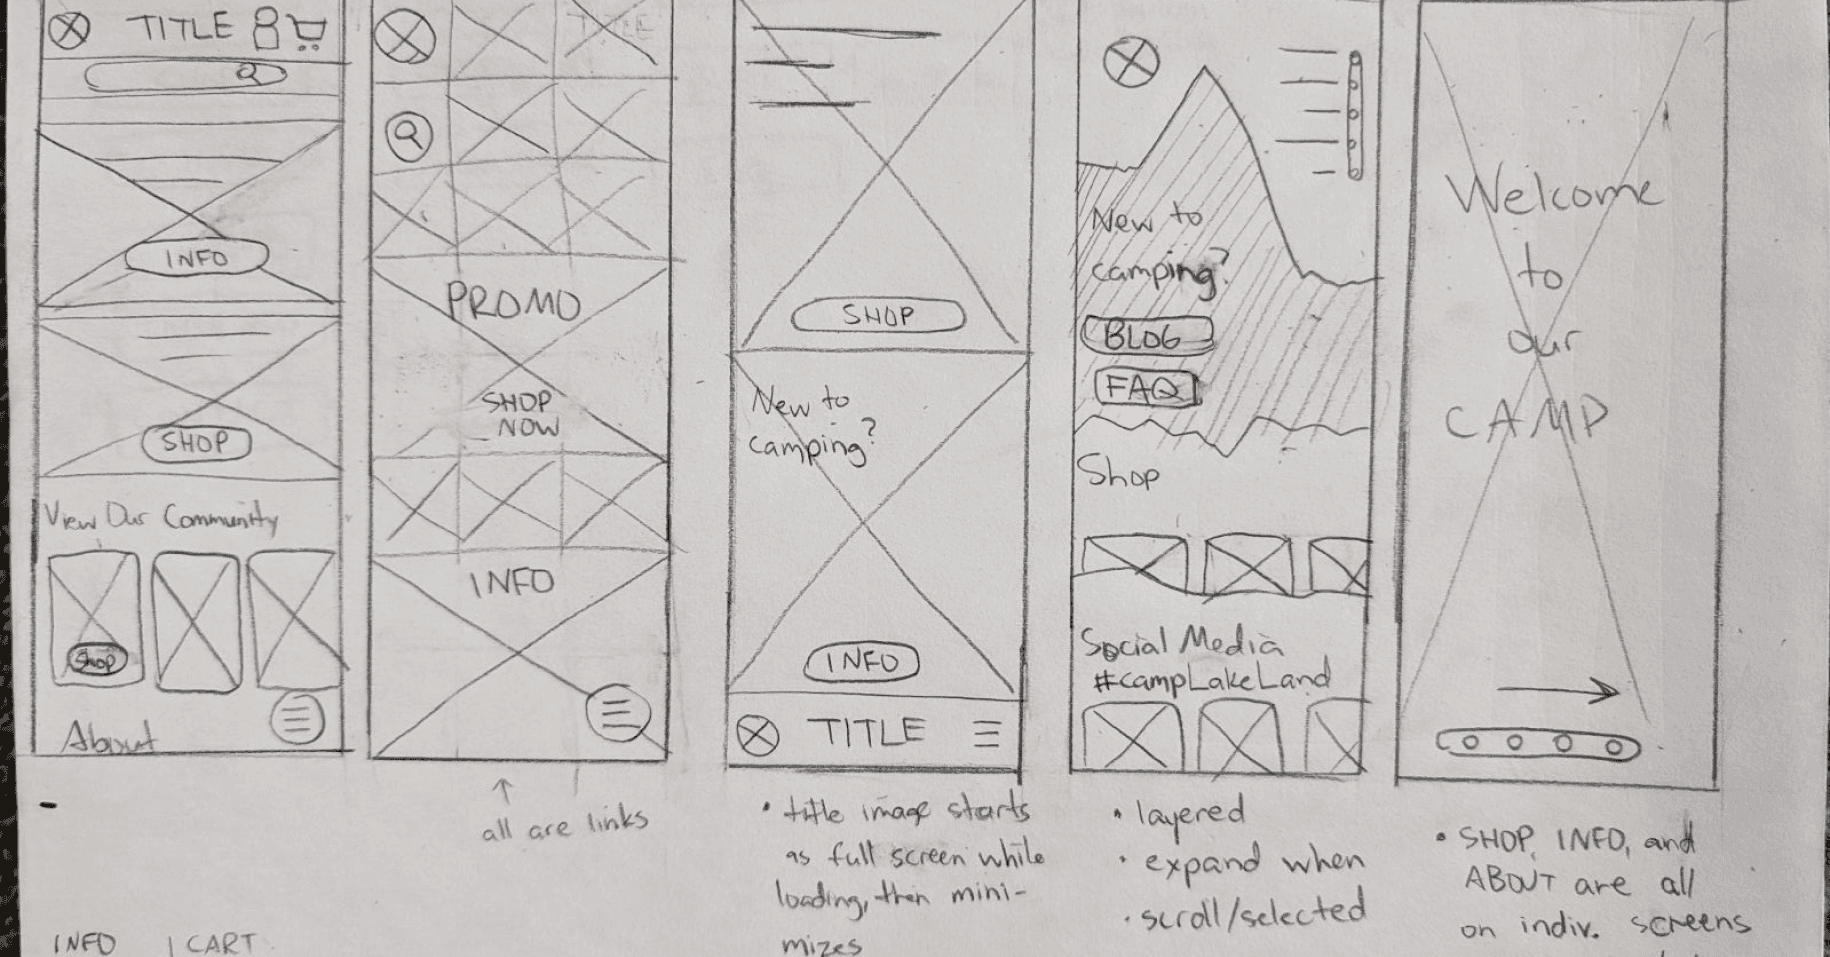 TITLE
INFO
SHOP
View Our Community
Shop
About
TITLE
PROMO
SHOP
NOW
INFO
↑
all are links
SHOP
New to
camping?
INFO
TITLE
• title image starts
as full screen while
loading, then mini-
mizes
New to
camping?
BLOG
FAQ
Shop
Social Media
#campLakeLand
• layered
• expand when
• scroll/selected
Welcome
to
our
CAMP
• SHOP, INFO, and
ABOUT are all
on indiv. screens
INFO | CART